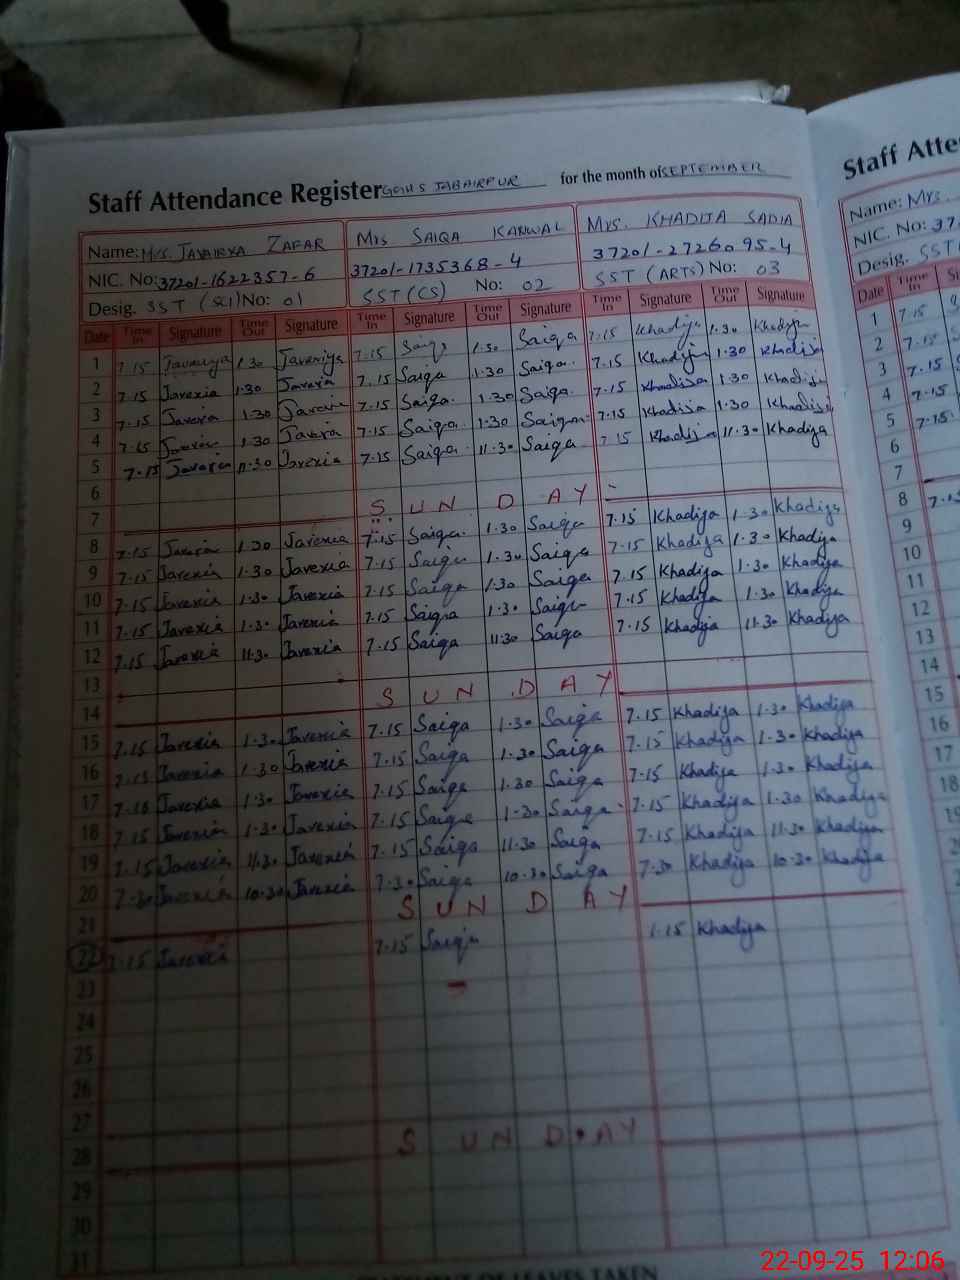 Staff Attendance Register GGHS JABAIRPUR for the month of SEPTEMBER
Name: Mrs. JAVAIRYA ZAFAR Mrs SAIQA KANWAL Mrs. KHADIJA SADIA
NIC. No: 37201-1622357-6 37201-1735368-4 37201-2726095-4
Desig. SST (SCI) No: 01 SST (CS) No: 02 SST (ARTS) No: 03
Date Time In Signature Time Out Signature Time In Signature Time Out Signature Time In Signature Time Out Signature
1 7.15 Javairiya 1.30 Javeriya 7.15 Saiqa 1.30 Saiqa 7.15 Khadija 1.30 Khadija
2 7.15 Javeria 1.30 Javeria 7.15 Saiqa 1.30 Saiqa 7.15 Khadija 1.30 Khadija
3 7.15 Javeria 1.30 Javeria 7.15 Saiqa 1.30 Saiqa 7.15 Khadija 1.30 Khadija
4 7.15 Javeria 1.30 Javeria 7.15 Saiqa 1.30 Saiqa 7.15 Khadija 1.30 Khadija
5 7.15 Javeria 11.30 Javeria 7.15 Saiqa 11.30 Saiqa 7.15 Khadija 11.30 Khadija
6
7 SUNDAY
8 7.15 Javeria 1.30 Javeria 7.15 Saiqa 1.30 Saiqa 7.15 Khadija 1.30 Khadija
9 7.15 Javeria 1.30 Javeria 7.15 Saiqa 1.30 Saiqa 7.15 Khadija 1.30 Khadija
10 7.15 Javeria 1.30 Javeria 7.15 Saiqa 1.30 Saiqa 7.15 Khadija 1.30 Khadija
11 7.15 Javeria 1.30 Javeria 7.15 Saiqa 1.30 Saiqa 7.15 Khadija 1.30 Khadija
12 7.15 Javeria 11.30 Javeria 7.15 Saiqa 11.30 Saiqa 7.15 Khadija 11.30 Khadija
13
14 SUNDAY
15 7.15 Javeria 1.30 Javeria 7.15 Saiqa 1.30 Saiqa 7.15 Khadija 1.30 Khadija
16 7.15 Javeria 1.30 Javeria 7.15 Saiqa 1.30 Saiqa 7.15 Khadija 1.30 Khadija
17 7.15 Javeria 1.30 Javeria 7.15 Saiqa 1.30 Saiqa 7.15 Khadija 1.30 Khadija
18 7.15 Javeria 1.30 Javeria 7.15 Saiqa 1.30 Saiqa 7.15 Khadija 1.30 Khadija
19 7.15 Javeria 11.30 Javeria 7.15 Saiqa 11.30 Saiqa 7.15 Khadija 11.30 Khadija
20 7.30 Javeria 10.30 Javeria 7.30 Saiqa 10.30 Saiqa 7.30 Khadija 10.30 Khadija
21 SUNDAY
22 7.15 Javeria 7.15 Saiqa 7.15 Khadija
23
24
25
26
27
28 SUNDAY
29
30
31
OF LEAVES TAKEN
Staff Atte
Name: Mrs.
NIC. No: 37
Desig. SST
Date Time In
1 7.15
2 7.15
3 7.15
4 7.15
5 7.15
6
7
8 7.1
9
10
11
12
13
14
15
16
17
18
22-09-25 12:06